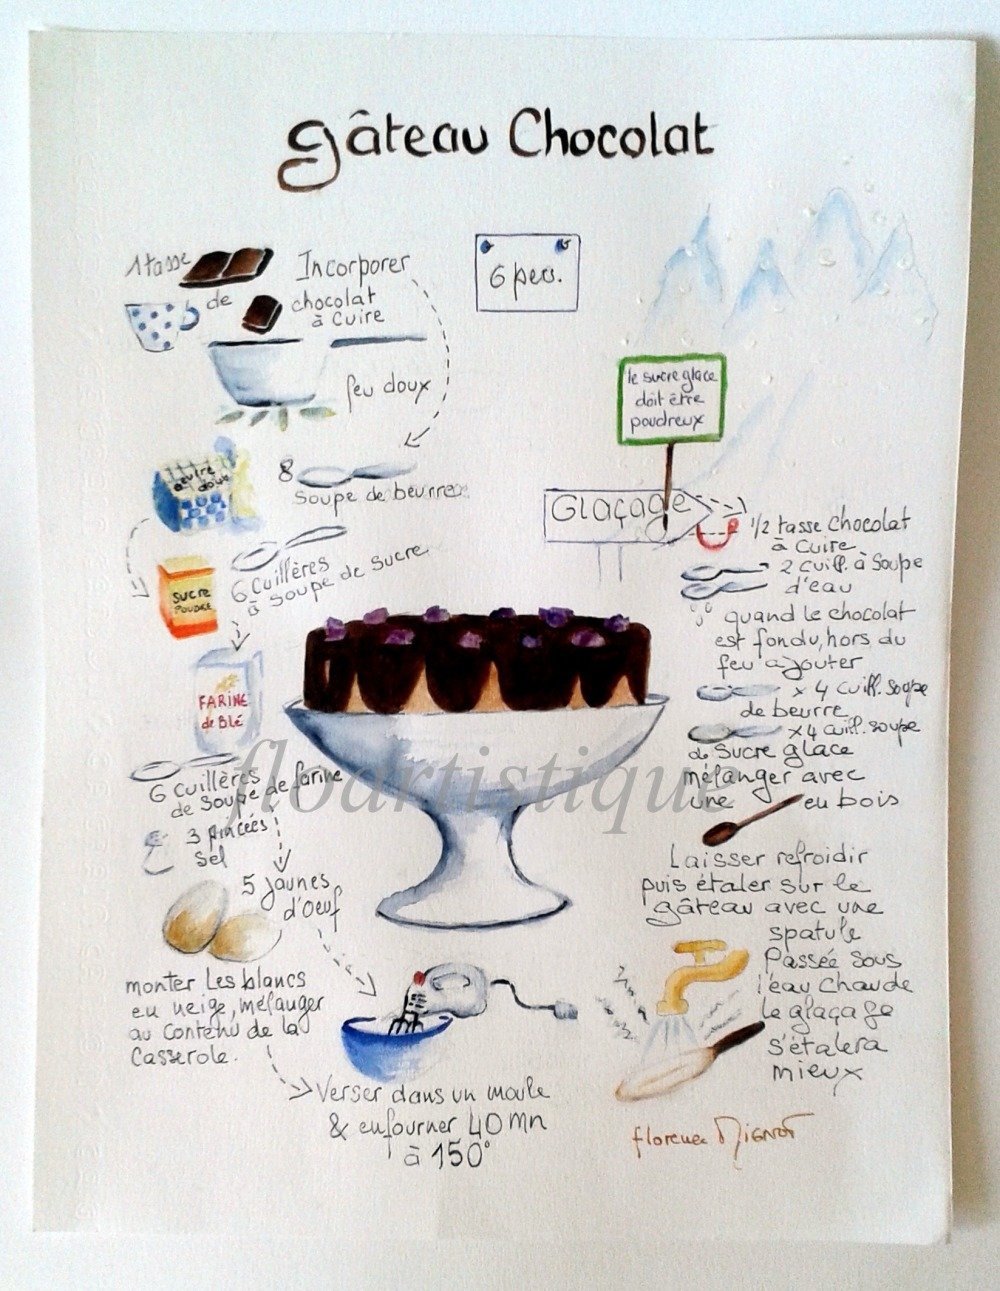 gâteau Chocolat
1 tasse
de
Incorporer
chocolat
à cuire
feu doux
6 pers.
le sucre glace
doit être
poudreux
beurre
doux
8
soupe de beurre
SUCRE
POUDRE
6 cuillères
à soupe de sucre
FARINE
de Blé
6 cuillères
de soupe de farine
3 pincées
sel
5 jaunes
d'oeuf
monter les blancs
en neige, mélanger
au contenu de la
casserole.
Verser dans un moule
& enfourner 40 mn
à 150°
Glaçage
1/2 tasse chocolat
à cuire
2 cuill. à soupe
d'eau
quand le chocolat
est fondu, hors du
feu ajouter
x 4 cuill. soupe
de beurre
x4 cuill. soupe
de sucre glace
mélanger avec
une en bois
Laisser refroidir
puis étaler sur le
gâteau avec une
spatule
Passée sous
l'eau chaude
le glaçage
s'étalera
mieux
florence MIGNOT
floartistique